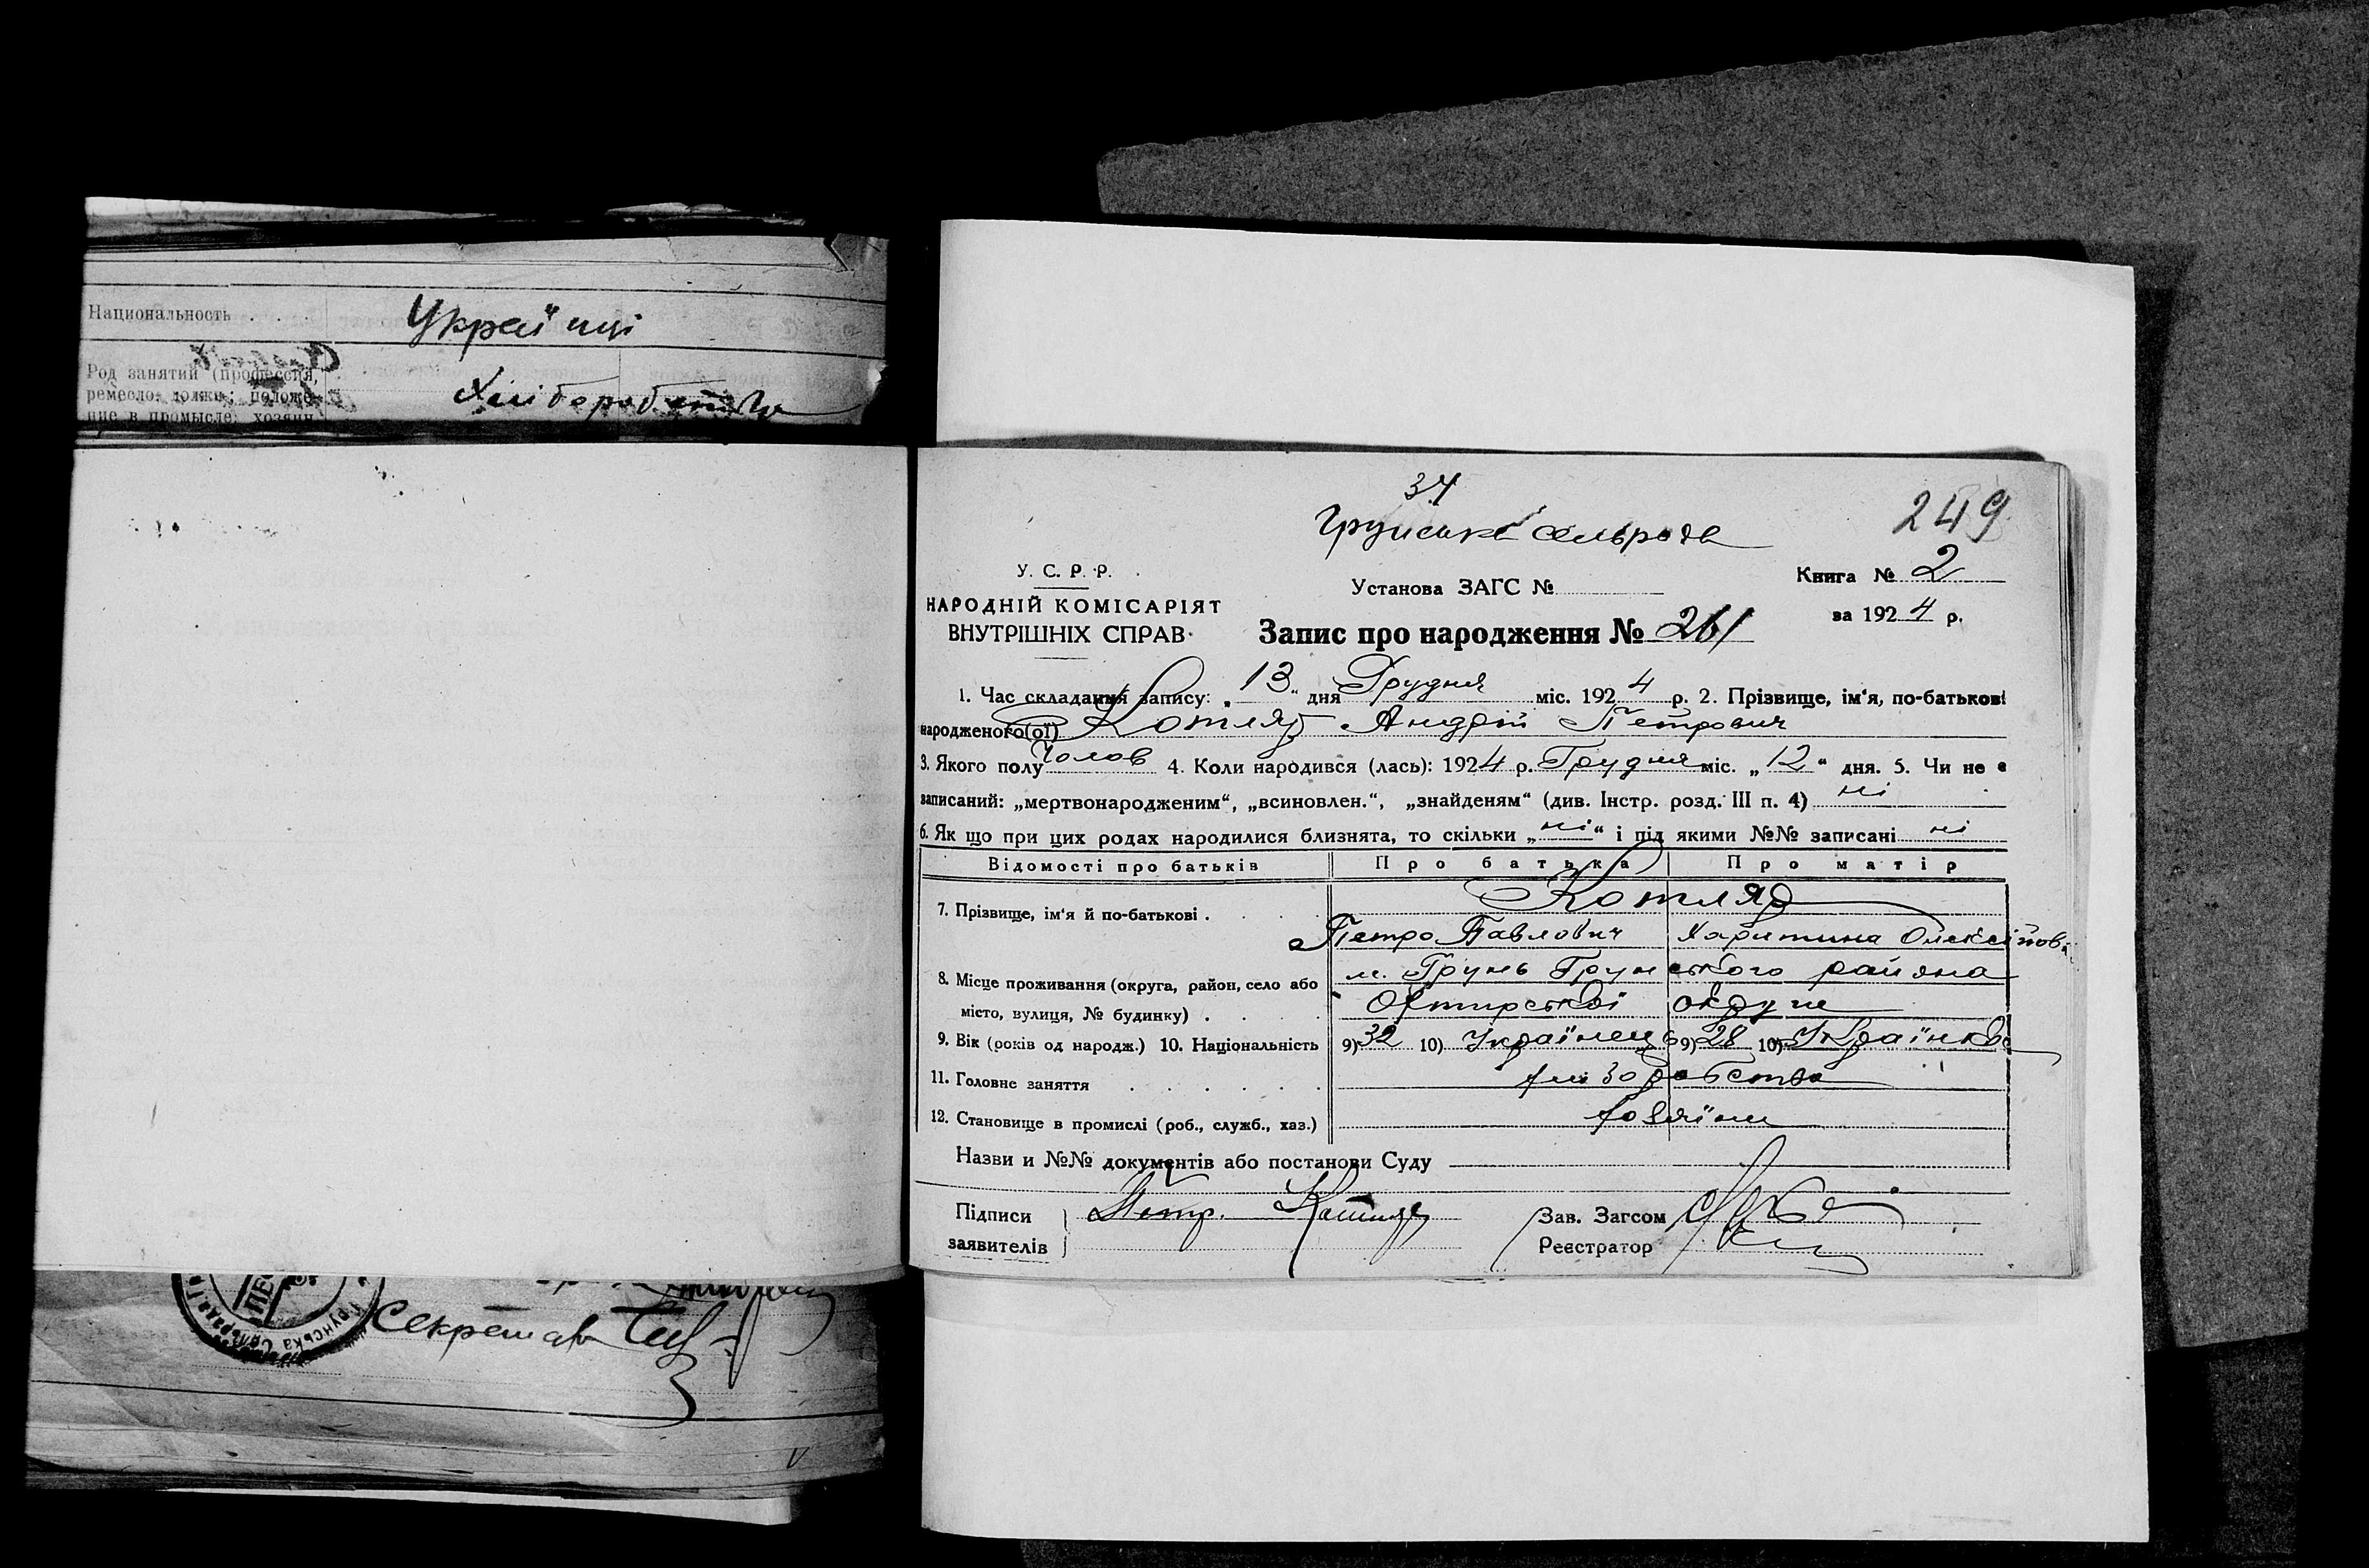 Национальность . . .
Украї нці
Род занятий (профессия,
ремесло, должн; положе-
ние в промысле: хозяин,
Хліборобство
Грунська Сільрада
Секретар
34
Грунська сільрада
249
У. С. Р. Р.
НАРОДНІЙ КОМІСАРІЯТ
ВНУТРІШНІХ СПРАВ
Установа ЗАГС №
Книга № 2
за 1924 р.
Запис про народження № 261
1. Час складання запису: „13“ дня Грудня міс. 1924 р. 2. Прізвище, ім'я, по-батькові
народженого(ої) Котляр Андрій Петрович
3. Якого полу Чолов 4. Коли народився (лась): 1924 р. Грудня міс. „12“ дня. 5. Чи не є
записаний: „мертвонародженим“, „всиновлен.“, „знайденям“ (див. Інстр. розд. III п. 4) ні
6. Як що при цих родах народилися близнята, то скільки „ні“ і під якими №№ записані ні
Відомості про батьків Про батька Про матір
7. Прізвище, ім'я й по-батькові . . . .
Котляр
Петро Павлович Харитина Олексіїов.
8. Місце проживання (округа, район, село або
місто, вулиця, № будинку) . . . .
м. Грунь Грунського района
Охтирської округи
9. Вік (років од народж.) 10. Національність 9) 32 10) Українець 9) 28 10) Українка
11. Головне заняття . . . . . .
12. Становище в промислі (роб., служб., хаз.)
Назви и №№ документів або постанови Суду
Підписи
заявителів
Петр. Котляр
Зав. Загсом
Реєстратор